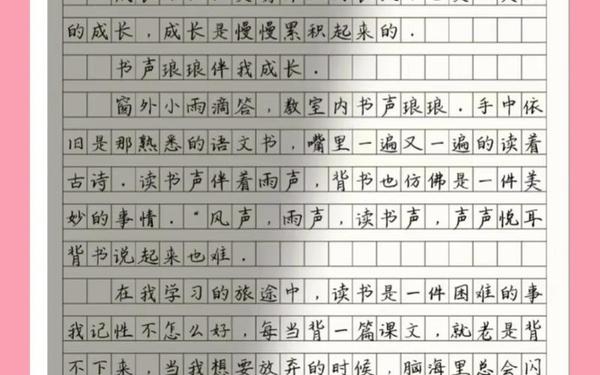 的成长，成长是慢慢累积起来的.
书声琅琅伴我成长.
窗外小雨滴答，教室内书声琅琅.手中依
旧是那熟悉的语文书，嘴里一遍又一遍的读着
古诗.读书声伴着雨声，背书也仿佛是一件美
妙的事情."风声，雨声，读书声，声声悦耳
背书说起来也难.
在我学习的旅途中，读书是一件困难的事
我记性不怎么好，每当背一篇课文，就老是背
不下来，当我想要放弃的时候，脑海里总会闪